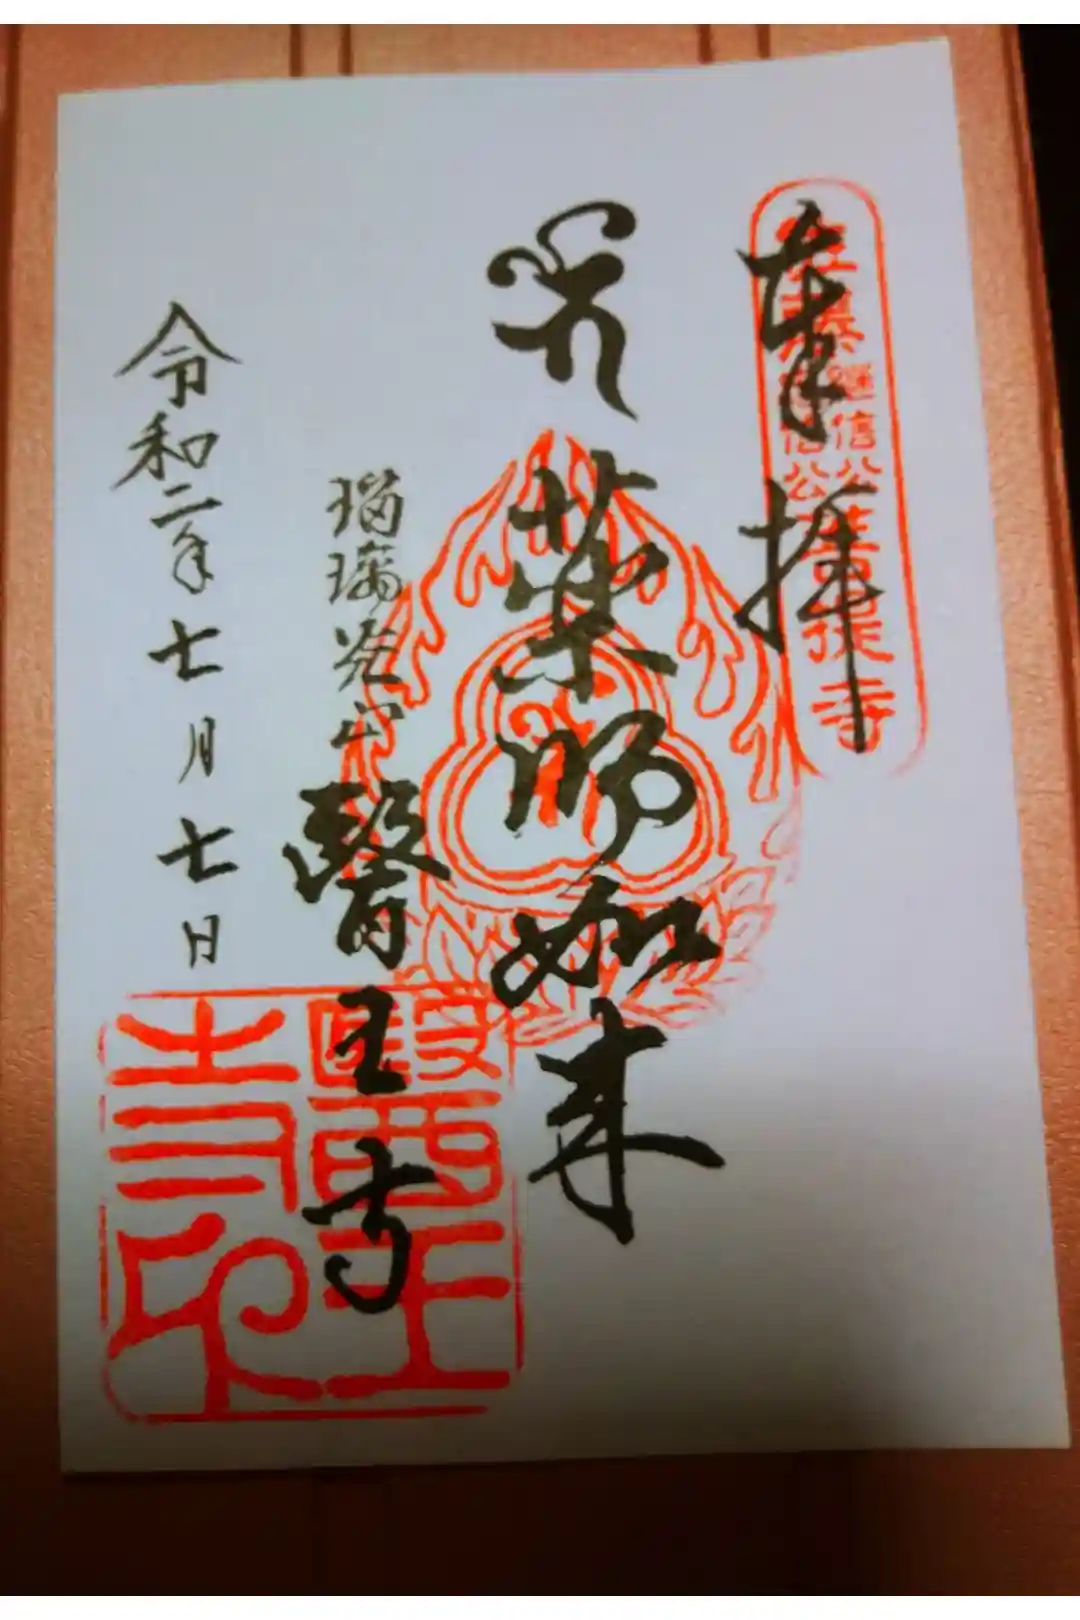 奉拝
佐藤継信公忠信公菩提寺
薬師如来
瑠璃光山
醫王寺
醫王寺印
令和二年七月七日